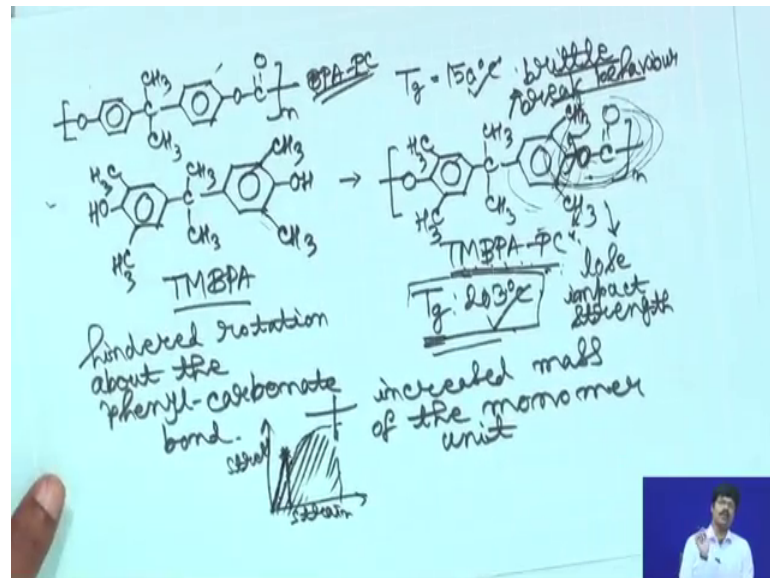 CH3
O
[ O C O C ]n BPA-PC
CH3
Tg = 150°C brittle
break behaviour
H3C CH3 CH3
HO C OH →
H3C CH3 CH3
TMBPA
H3C CH3 CH3 O
[ O C O C ]n
H3C CH3 CH3
TMBPA-PC
Tg: 203°C
lose
impact
strength
hindered rotation
about the
phenyl-carbonate
bond.
increased mass
of the monomer
unit
strain